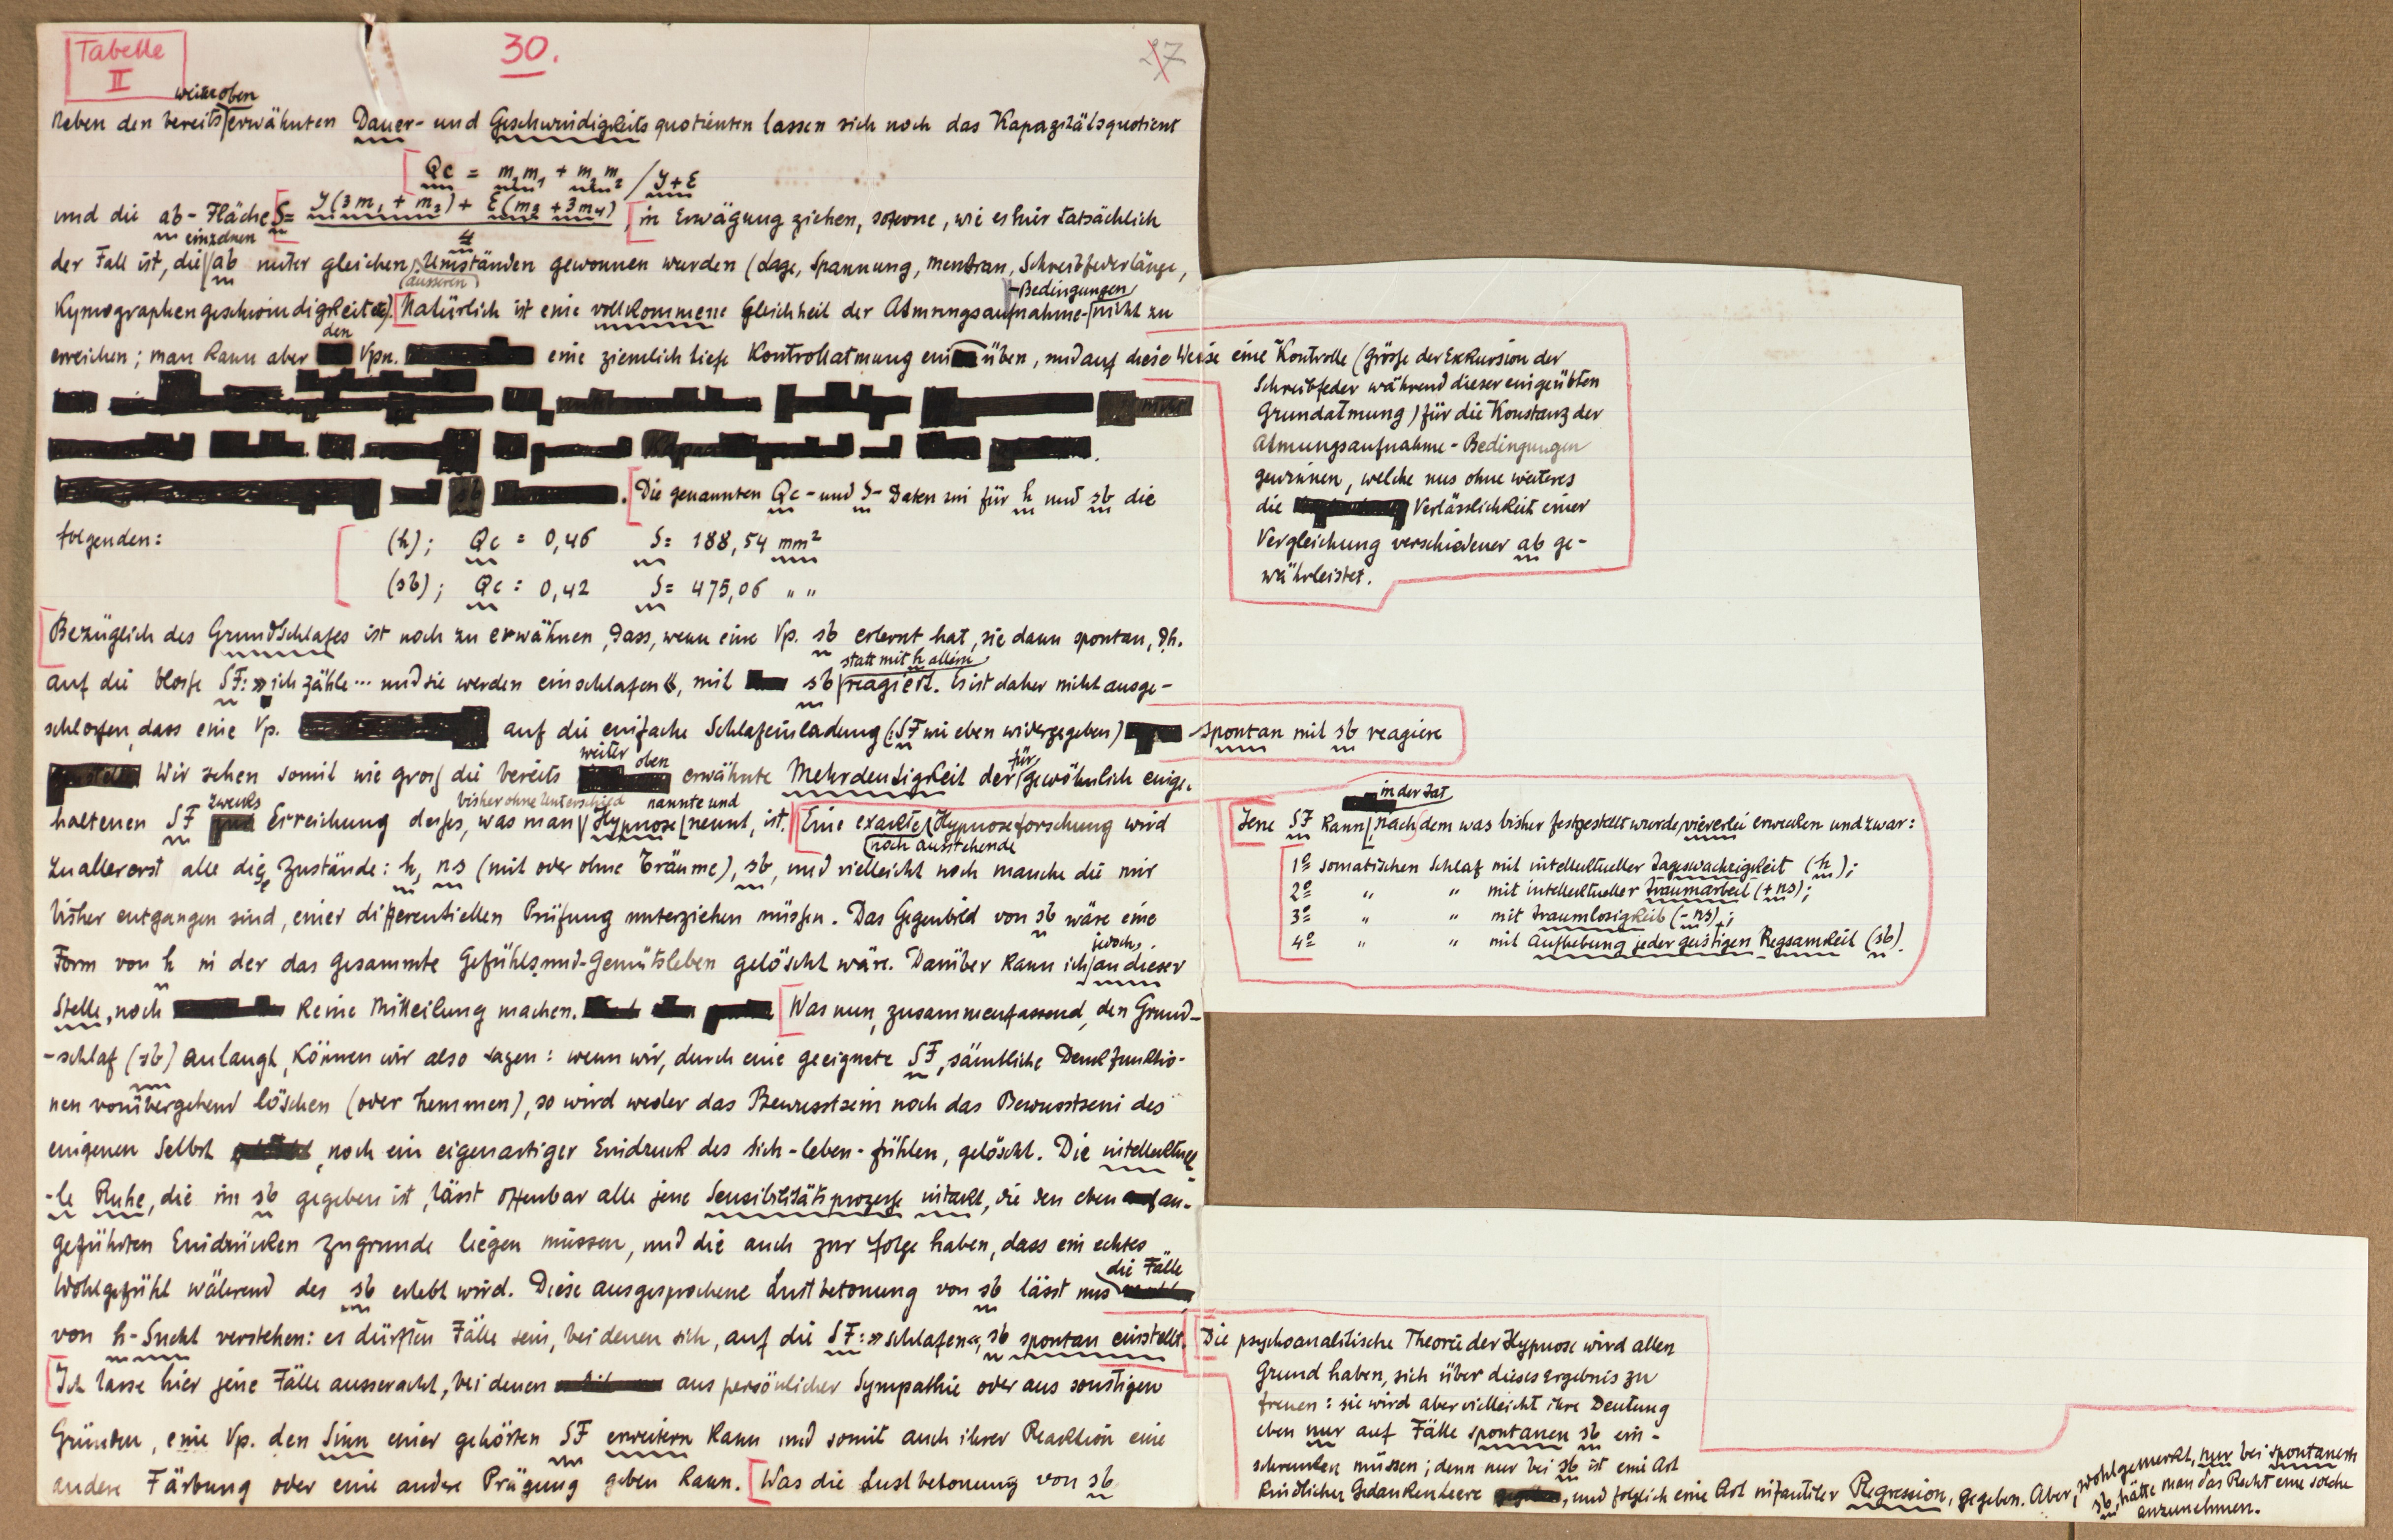 Tabelle
II
30.
27
weiter oben
Neben den bereits erwähnten Dauer- und Geschwindigkeitsquotienten lassen sich noch das Kapazitätsquotient
Qc = m₁m₁ + m₂m₂ / J+E
und die ab-Fläche S = J(3m₁ + m₂) + E(m₃ + 3m₄) / 4 in Erwägung ziehen, soferne, wie es hier tatsächlich
einzelnen
der Fall ist, die ab unter gleichen Umständen gewonnen wurden (Lage, Spannung, Membran, Schreibfederlänge,
(äusseren)
-Bedingungen
Kymographengeschwindigkeit etc). Natürlich ist eine vollkommene Gleichheit der Atmungsaufnahme- nicht zu
den
erreichen; man kann aber Vpn. eine ziemlich tiefe Kontrollatmung ein üben, und auf diese Weise eine Kontrolle (Grösse der Exkursion der
Schreibfeder während dieser eingeübten
Grundatmung) für die Konstanz der
Atmungsaufnahme-Bedingungen
gewinnen, welche uns ohne weiteres
die Verlässlichkeit einer
Vergleichung verschiedener ab ge-
währleistet.
Die genannten Qc- und S- Daten sind für h und sb die
folgenden:
(h); Qc = 0,46 S = 188,54 mm²
(sb); Qc = 0,42 S = 475,06 " "
Bezüglich des Grundschlafes ist noch zu erwähnen, dass, wenn eine Vp. sb erlernt hat, sie dann spontan, d.h.
statt mit h allein
auf die blosse SF: »ich zähle ... und sie werden einschlafen«, mit sb reagiert. Es ist daher nicht ausge-
schlossen, dass eine Vp. auf die einfache Schlafeinladung (:SF wie eben widergegeben) spontan mit sb reagiere
weiter oben
für
Wir sehen somit wie gross die bereits erwähnte Mehrdeutigkeit der gewöhnlich einge-
zwecks bisher ohne Unterschied nannte und
haltenen SF Erreichung dessen, was man Hypnose nennt, ist. Eine exakte Hypnoseforschung wird
noch ausstehende
zuallererst alle die Zustände: h, ns (mit oder ohne Träume), sb, und vielleicht noch manche die mir
bisher entgangen sind, einer differentiellen Prüfung unterziehen müssen. Das Gegenbild von sb wäre eine
jedoch,
Form von h in der das gesammte Gefühls-und-Gemütsleben gelöscht wäre. Darüber kann ich an dieser
Stelle, noch keine Mitteilung machen. Was nun, zusammenfassend, den Grund-
in der Tat
Jene SF kann nach dem was bisher festgestellt wurde, viererlei erwecken und zwar:
1º somatischen Schlaf mit intellektueller Tageswachrigkeit (h);
2º " " mit intellektueller Traumarbeit (+ns);
3º " " mit Traumlosigkeit (-ns);
4º " " mit Aufhebung jeder geistigen Regsamkeit (sb).
-schlaf (sb) anlangt, können wir also sagen: wenn wir, durch eine geeignete SF, sämtliche Denkfunktio-
nen vorübergehend löschen (oder hemmen), so wird weder das Bewusstsein noch das Bewusstsein des
eigenen Selbst, noch ein eigenartiger Eindruck des Sich-leben-fühlen, gelöscht. Die intellektuel-
-le Ruhe, die im sb gegeben ist, lässt offenbar alle jene Sensibilitätsprozesse intakt, die den eben an-
geführten Eindrücken zugrunde liegen müssen, und die auch zur folge haben, dass ein echtes
die Fälle
Wohlgefühl während des sb erlebt wird. Diese ausgesprochene Lustbetonung von sb lässt uns
von h-Sucht verstehen: es dürften Fälle sein, bei denen sich, auf die SF: »schlafen«, sb spontan einstellt.
Ich lasse hier jene Fälle ausseracht, bei denen aus persönlicher Sympathie oder aus sonstigen
Gründen, eine Vp. den Sinn einer gehörten SF erweitern kann und somit auch ihrer Reaktion eine
andere Färbung oder eine andere Prägung geben kann. Was die Lustbetonung von sb
Die psychoanalitische Theorie der Hypnose wird allen
Grund haben, sich über dieses Ergebnis zu
freuen: sie wird aber vielleicht ihre Deutung
eben nur auf Fälle spontanen sb ein-
schrenken müssen; denn nur bei sb ist eine Art
kindlicher Gedankenleere, und folglich eine Art infantiler Regression, gegeben. Aber, wohlgemerkt, nur bei spontanem
sb, hätte man das Recht eine solche
anzunehmen.